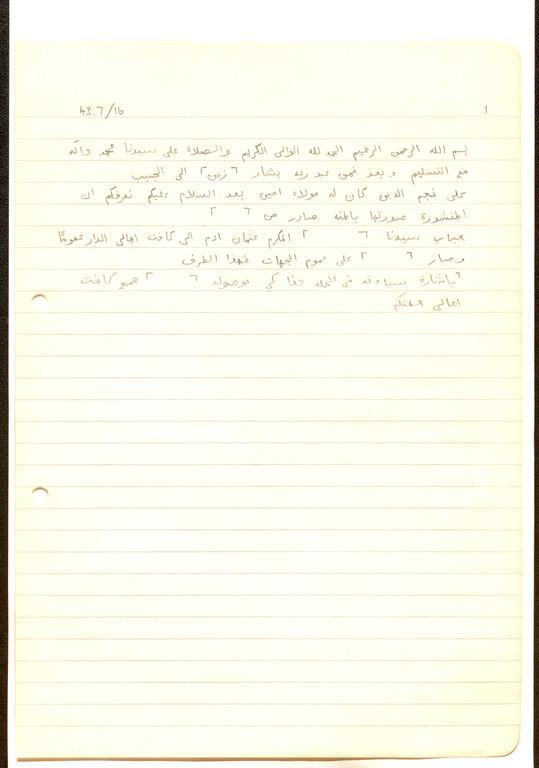 43.7/16
1
بسم الله الرحمن الرحيم الحمد لله الوالى الكريم والصلاة على سيدنا محمد واله
مع التسليم وبعد فمن عبد ربه بشار ٦ ٢ الى الحبيب
على نجم الدين كان له مولاه امين بعد السلام عليكم نعرفكم ان
المنشورة صورتها بالمنه صادر من ٦ ٢
جناب سيدنا ٦ ٢ المكرم عثمان ادم الى كافت اهالى الدار عموما
وصار ٦ ٢ على عموم الجهات فهذا الطرف
٦ باشارة فى هذا كي بوصوله ٦ ٢ جمع كافت
اهالى جهتكم